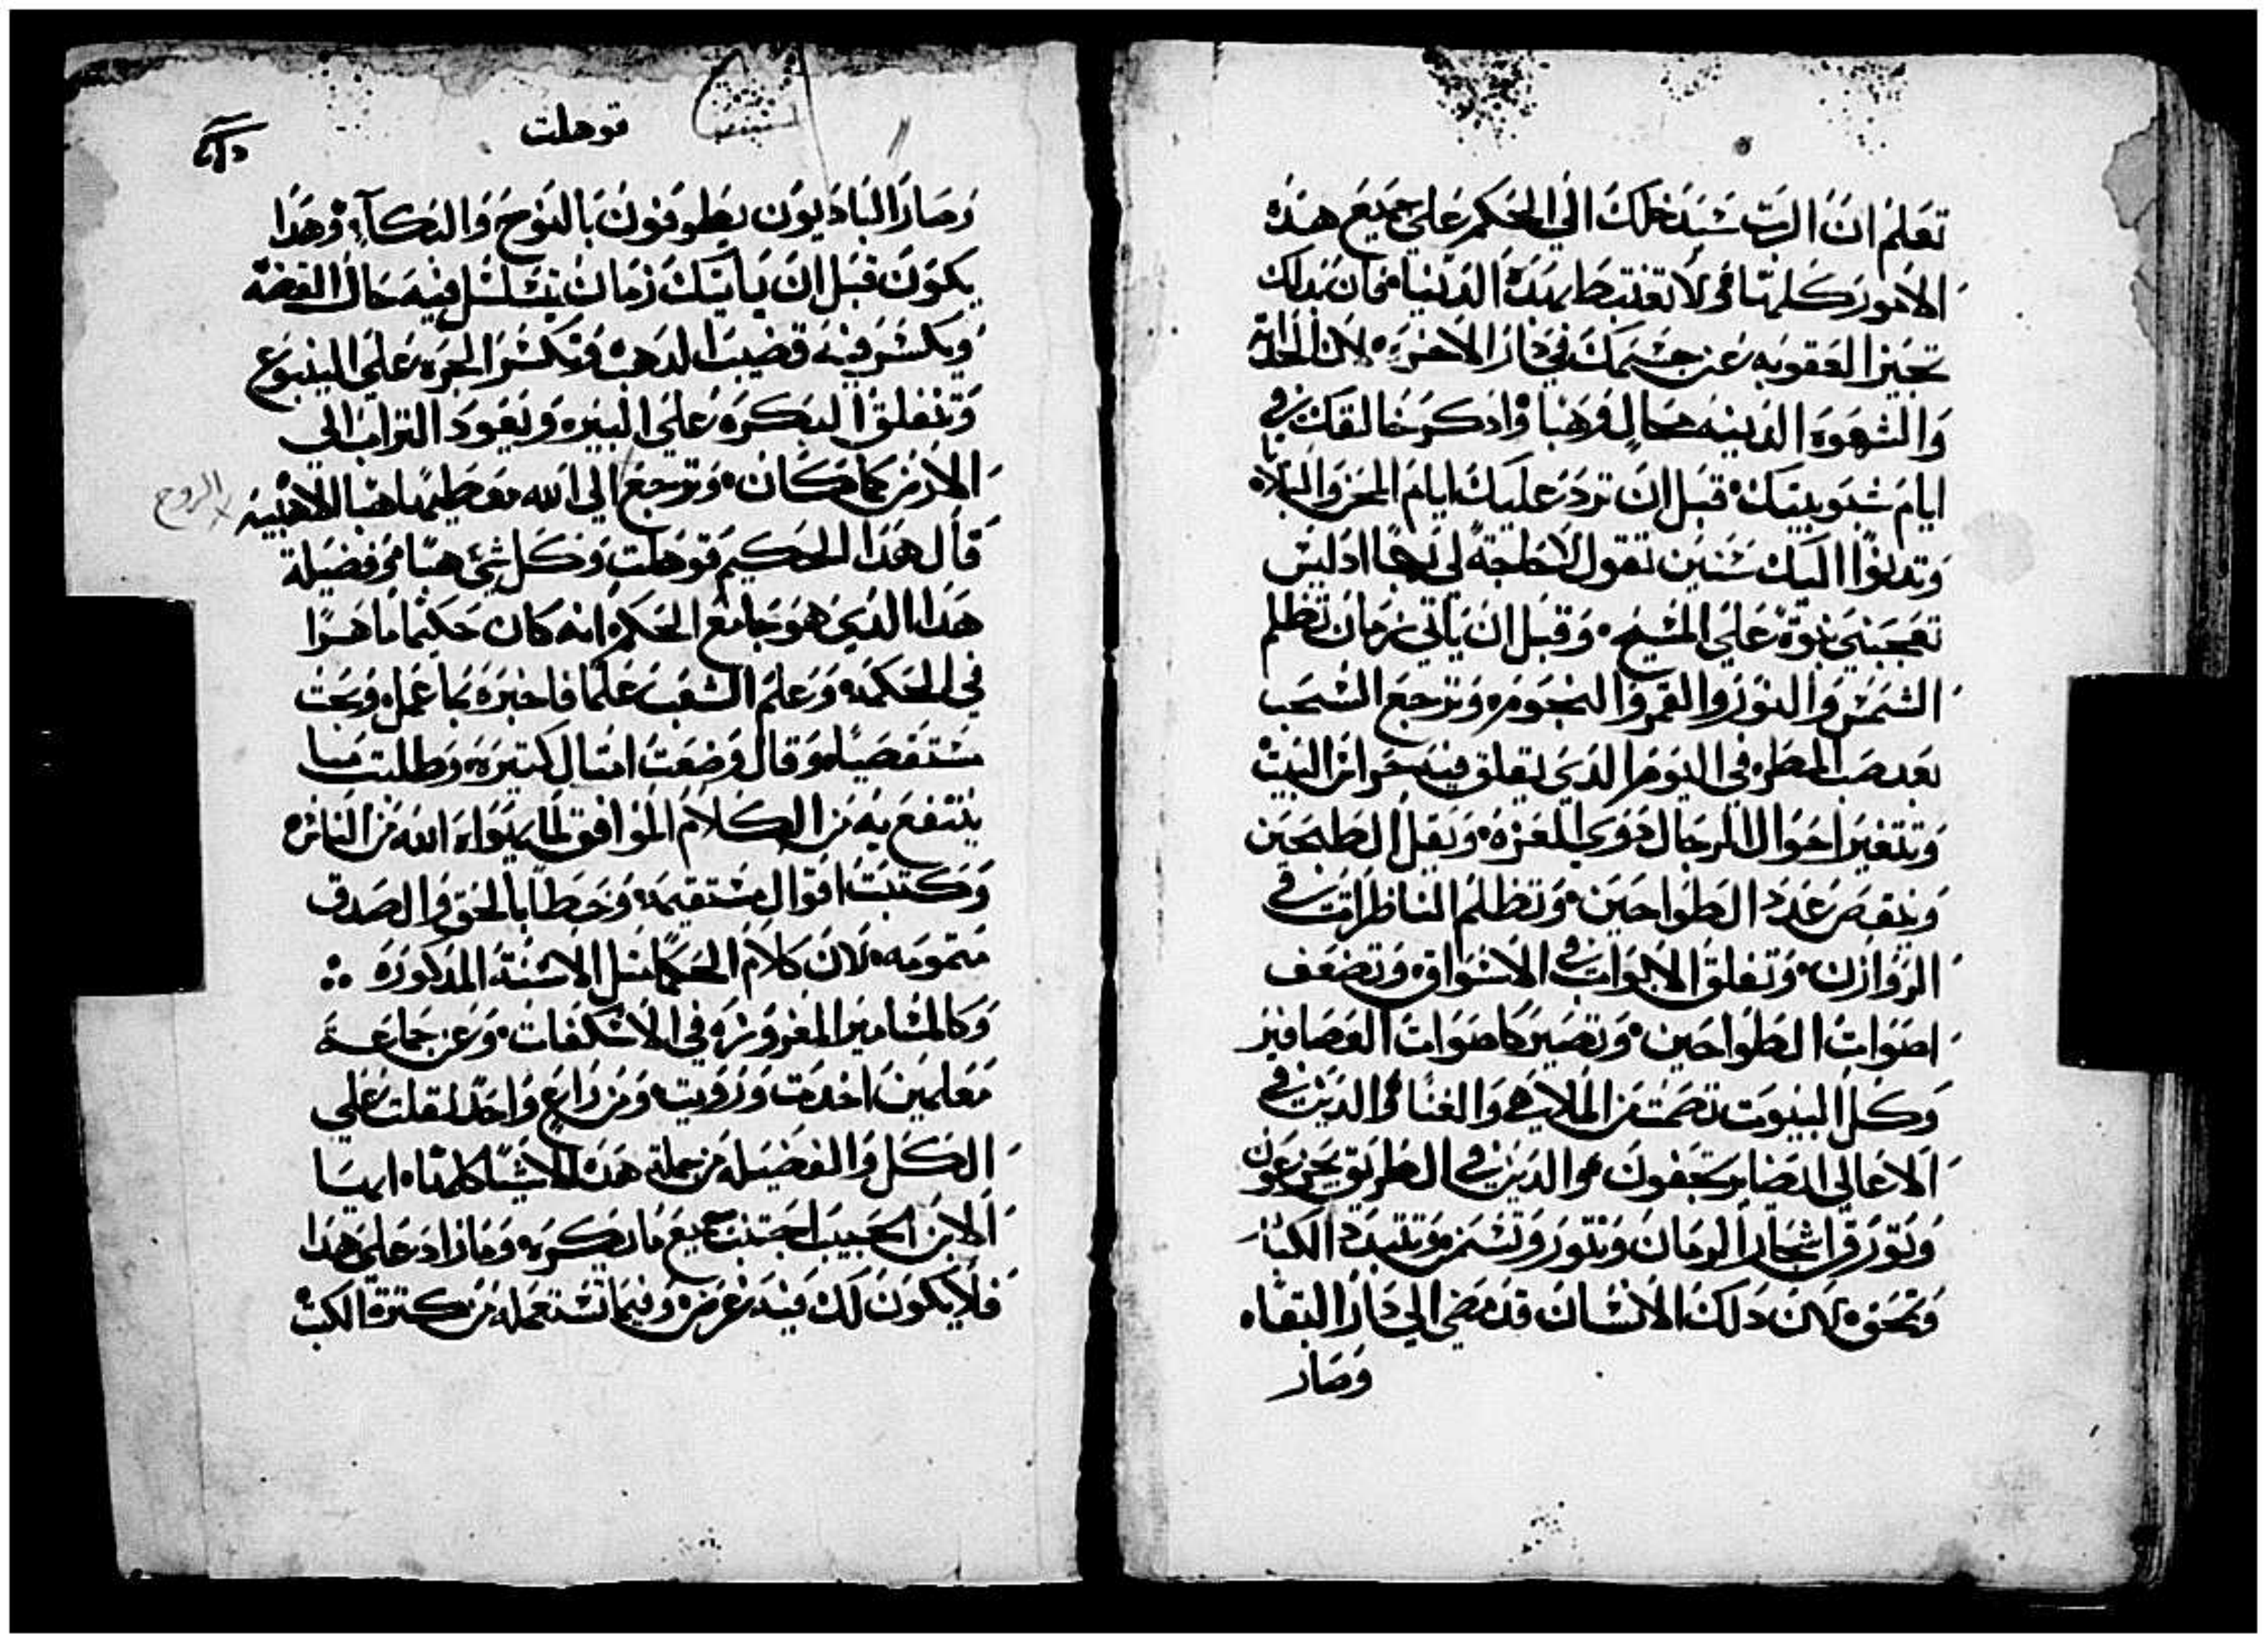 تعلم ان الرب سيدخلك الي الحكم علي جميع هذه
الامور كلها فلا تغتبط بهذه الدنيا فان بذلك
تجيز العقوبه عن جسمك في دار الاخره لان الحداثة
والشهوه الدينيه محال وهبا واذكر خالقك في
ايام شبوبيتك قبل ان ترد عليك ايام المحن والبلاه
وتدانوا اليك سنين تقول لا حاجة لي بها اد ليس
تعجبني نبوة علي المسيح وقبل ان ياتي زمان تظلم
الشمس والنور والقمر والنجوم وترجع السحب
بعد صب المطر في اليوم الدي يقلق فيه حراس البيت
وتتغير احوال الرجال دوي العزه ويقل الطبحين
وينقص عدد الطواحين وتظلم الناظرات في
الروازن وتغلق الابواب في الاسواق وتضعف
اصوات الطواحين وتصير كاصوات العصافير
وكل البيوت تصمت من الملاهي والغنا والدين في
الاعالي ايضا يرتجفون والدين في الطريق يجزعون
وتورق اشجار الرمان وتنور وتسمن وتتبدد الكبار
وتحق لان دلك الانسان قد مضي الي دار البقاه
وصار
قوهلت
وصار الناديون يطوفون بالنوح والبكآء وهدا
يكون قبل ان ياتيك زمان يتسلسل فيه حال الفضه
ويكسر فيه قضيب الدهب وتكسر الجره علي الينبوع
وتنغلق البكره علي البيره ويعود التراب الي
الارض كما كان وترجع الي الله معطيها هبا الاهبيه
الروح
قال هدا الحكيم قوهلت وكل شي هبا وفضيلة
هدا الدي هو جامع الحكم انه كان حكيما ماهرا
في الحكمه وعلم الشعب علما فاخبره بما عمل وبحث
مستقصيا وقال وضعت امثال كتيره وطلبت ما
ينتفع به من الكلام الموافق لما يهواه الله من الناس
وكتبت اقوال مستقيمه وخطا بالحق والصدق
متمومه لان كلام الحكما متل الاسنة المدكوره
وكالمسامير المغروزه في الاسكفات وعن جماعة
معلمين اخدت ورويت ومن راع واحد نقلت علي
الكل والفضيله من جملة هده الاشيا كلها ايها
الابن الحبيب اجتنب جميع ما يكره وما زاد علي هدا
فلا يكون لك فيه غرض وفيما تستعمله من كترة الكتب